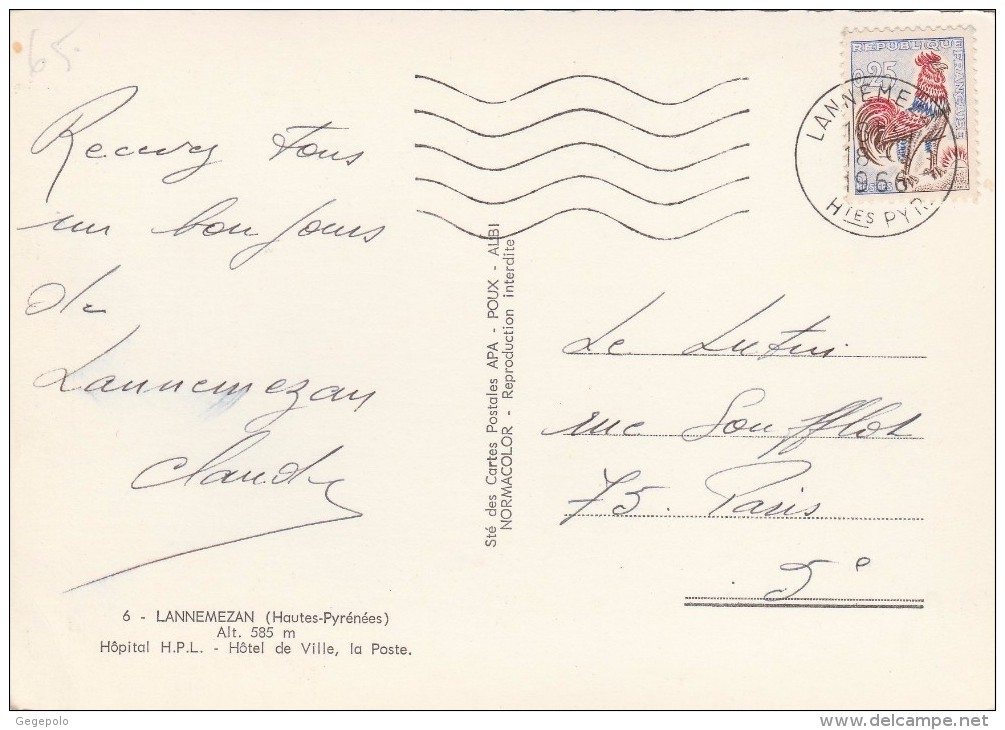 65
Recevez tous
un bon jours
de
Lannemezan
Claude
6 - LANNEMEZAN (Hautes-Pyrénées)
Alt. 585 m
Hôpital H.P.L. - Hôtel de Ville, la Poste.
Sté des Cartes Postales APA - POUX - ALBI
NORMACOLOR - Reproduction interdite
REPUBLIQUE FRANÇAISE
0,25
POSTES
LANNEMEZAN
18
1966
HTES PYR.
Le Lutin
rue Soufflot
75. Paris
5e
Gegepolo
delcampe.net